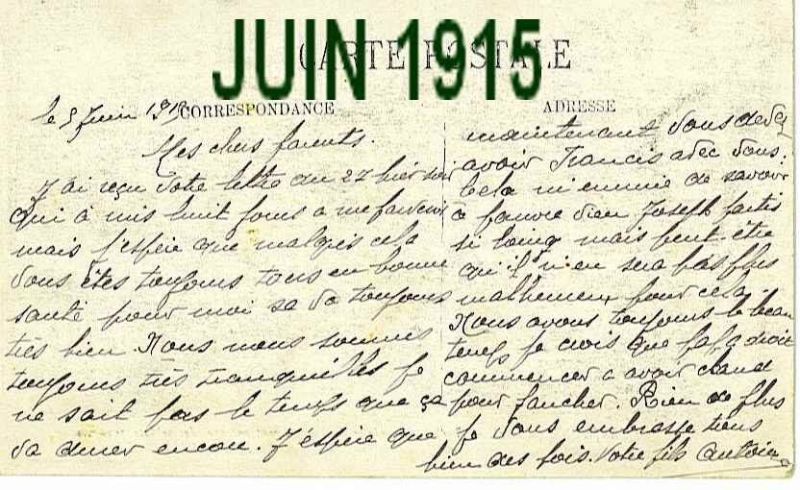 JUIN 1915
CARTE POSTALE
CORRESPONDANCE
ADRESSE
le 5 Juin 1915
Mes chers parents.
J'ai reçu votre lettre du 27 hier soir
qui à mis huit jours a me parvenir
mais j'espère que malgrès cela
vous êtes toujours tous en bonne
santé pour moi sa va toujours
très bien Nous nous sommes
toujours très tranquilles je
ne sait pas le temps que ça
va durer encore. J'espère que
maintenant vous devez
avoir Francis avec vous.
Cela m'ennuie de savoir
ce pauvre vieu Joseph partis
si loing mais peut être
qu'il n'en sera pas plus
malheureux pour cela.
Nous avons toujours le beau
temps je crois que papa doit
commencer a avoir chaud
pour faucher. Rien de plus
je vous embrasse tous
bien des fois. Votre fils Antoine